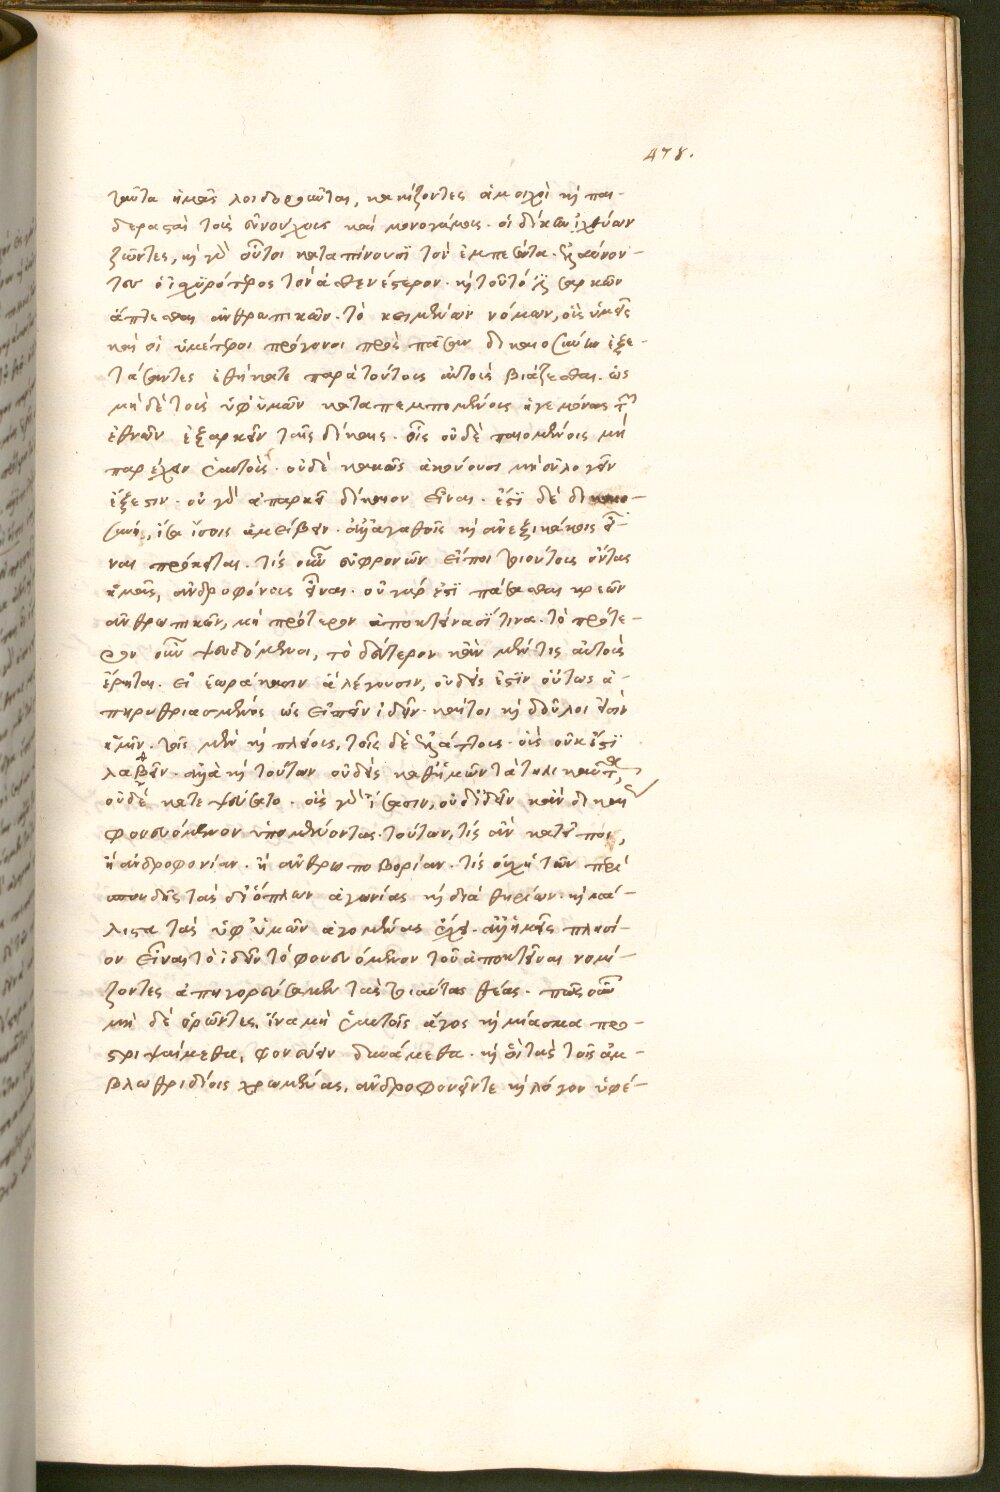 478.
ταῦτα ἡμᾶς λοιδοροῦνται, κακίζοντες ἁμοιχοὶ καὶ παι-
δερασταὶ τοὺς εὐνούχους καὶ μονογάμους. οἱ δίκην ἰχθύων
ζῶντες, καὶ γὰρ οὗτοι καταπίνουσι τὸν ἐμπεσόντα. ἐλαύνον-
τες ὁ ἰσχυρότερος τὸν ἀσθενέστερον. καὶ τοῦτό ἐστι σαρκῶν
ἅπτεσθαι ἀνθρωπικῶν. τὸ κειμένων νόμων, οὓς ὑμεῖς
καὶ οἱ ὑμέτεροι πρόγονοι πρὸς πᾶσαν δικαιοσύνην ἐξε-
τάσαντες ἐθήκατε παρὰ τούτους αὐτοὺς βιάζεσθαι. ὡς
μηδὲ τοὺς ὑφ' ὑμῶν καταπεμπομένους ἡγεμόνας τῶν
ἐθνῶν ἐξαρκεῖν ταῖς δίκαις. οἷς οὐδὲ παιομένοις μὴ
παρέχειν ἑαυτοὺς. οὐδὲ κακῶς ἀκούουσι μὴ εὐλογεῖν
ἔξεστιν. οὐ γὰρ ἀπαρκεῖ δίκαιον εἶναι. ἔστι δὲ δικαιο-
σύνη, ἴσα ἴσοις ἀμείβειν. ἀλλ' ἀγαθοῖς καὶ ἀνεξικάκοις εἶ-
ναι πρόκειται. τίς οὖν εὐφρονῶν εἴποι τοιούτους ὄντας
ἡμᾶς, ἀνδροφόνους εἶναι. οὐ γάρ ἐστι πάσασθαι κρεῶν
ἀνθρωπικῶν, μὴ πρότερον ἀποκτείνασί τινα. τὸ πρότε-
ρον οὖν ψευδόμενοι, τὸ δεύτερον κἂν μέν τις αὐτοὺς
ἔρηται. εἰ ἑωράκασιν ἃ λέγουσιν, οὐδείς ἐστιν οὕτως ἀ-
πηρυθριασμένος ὡς εἰπεῖν ἰδεῖν. καίτοι καὶ δοῦλοι εἰσὶν
ἡμῖν. τοῖς μὲν καὶ πλείους, τοῖς δὲ ἐλάττους. οὓς οὐκ ἔστι
λαθεῖν. ἀλλὰ καὶ τούτων οὐδεὶς καθ' ἡμῶν τὰ τηλικαῦτα,
οὐδὲ κατεψεύσατο. οὓς γὰρ ἴσασιν, οὐδ' ἰδεῖν κἂν δικαίως
φονευόμενον ὑπομένοντας. τούτων, τίς ἂν κατείποι,
ἢ ἀνδροφονίαν. ἢ ἀνθρωποβορίαν. τίς οὐχὶ τῶν περὶ
σπουδῆς τὰς δι' ὅπλων ἀγωνίας καὶ διὰ θηρίων. καὶ μά-
λιστα τὰς ὑφ' ὑμῶν ἀγομένας ἔχει. ἀλλ' ἡμεῖς πλησί-
ον εἶναι τὸ ἰδεῖν τὸ φονευόμενον τοῦ ἀποκτεῖναι νομί-
ζοντες ἀπηγορεύσαμεν τὰς τοιαύτας θέας. πῶς οὖν
μὴ δὲ ὁρῶντες, ἵνα μὴ ἑαυτοῖς ἄγος καὶ μίασμα προ-
στριψαίμεθα, φονεύειν δυνάμεθα. καὶ οἳ τὰς τοῖς ἀμ-
βλωθριδίοις χρωμένας, ἀνδροφονεῖν τε καὶ λόγον ὑφέ-